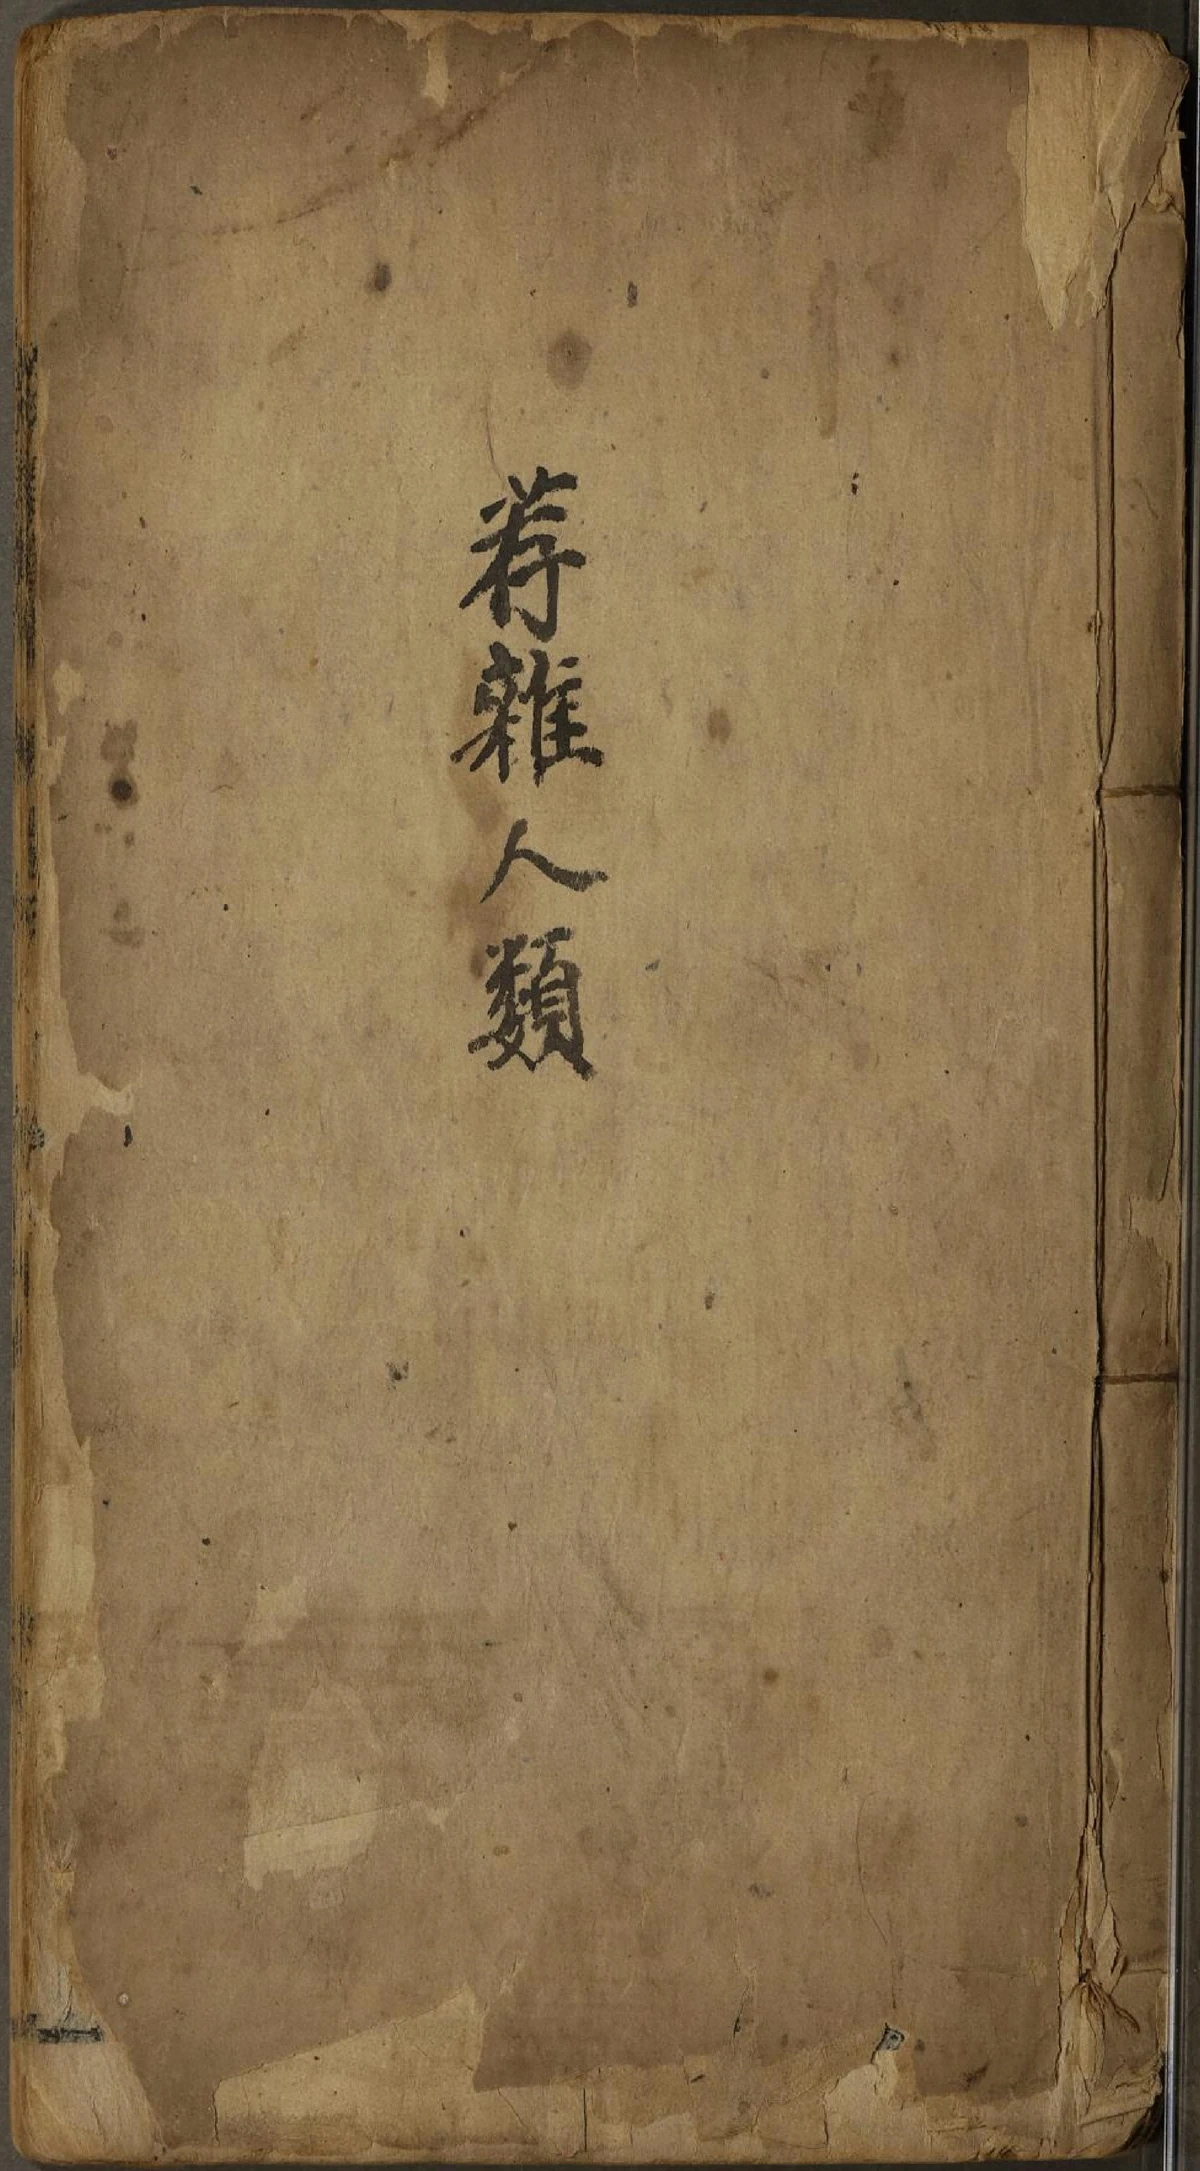 荐雜人類